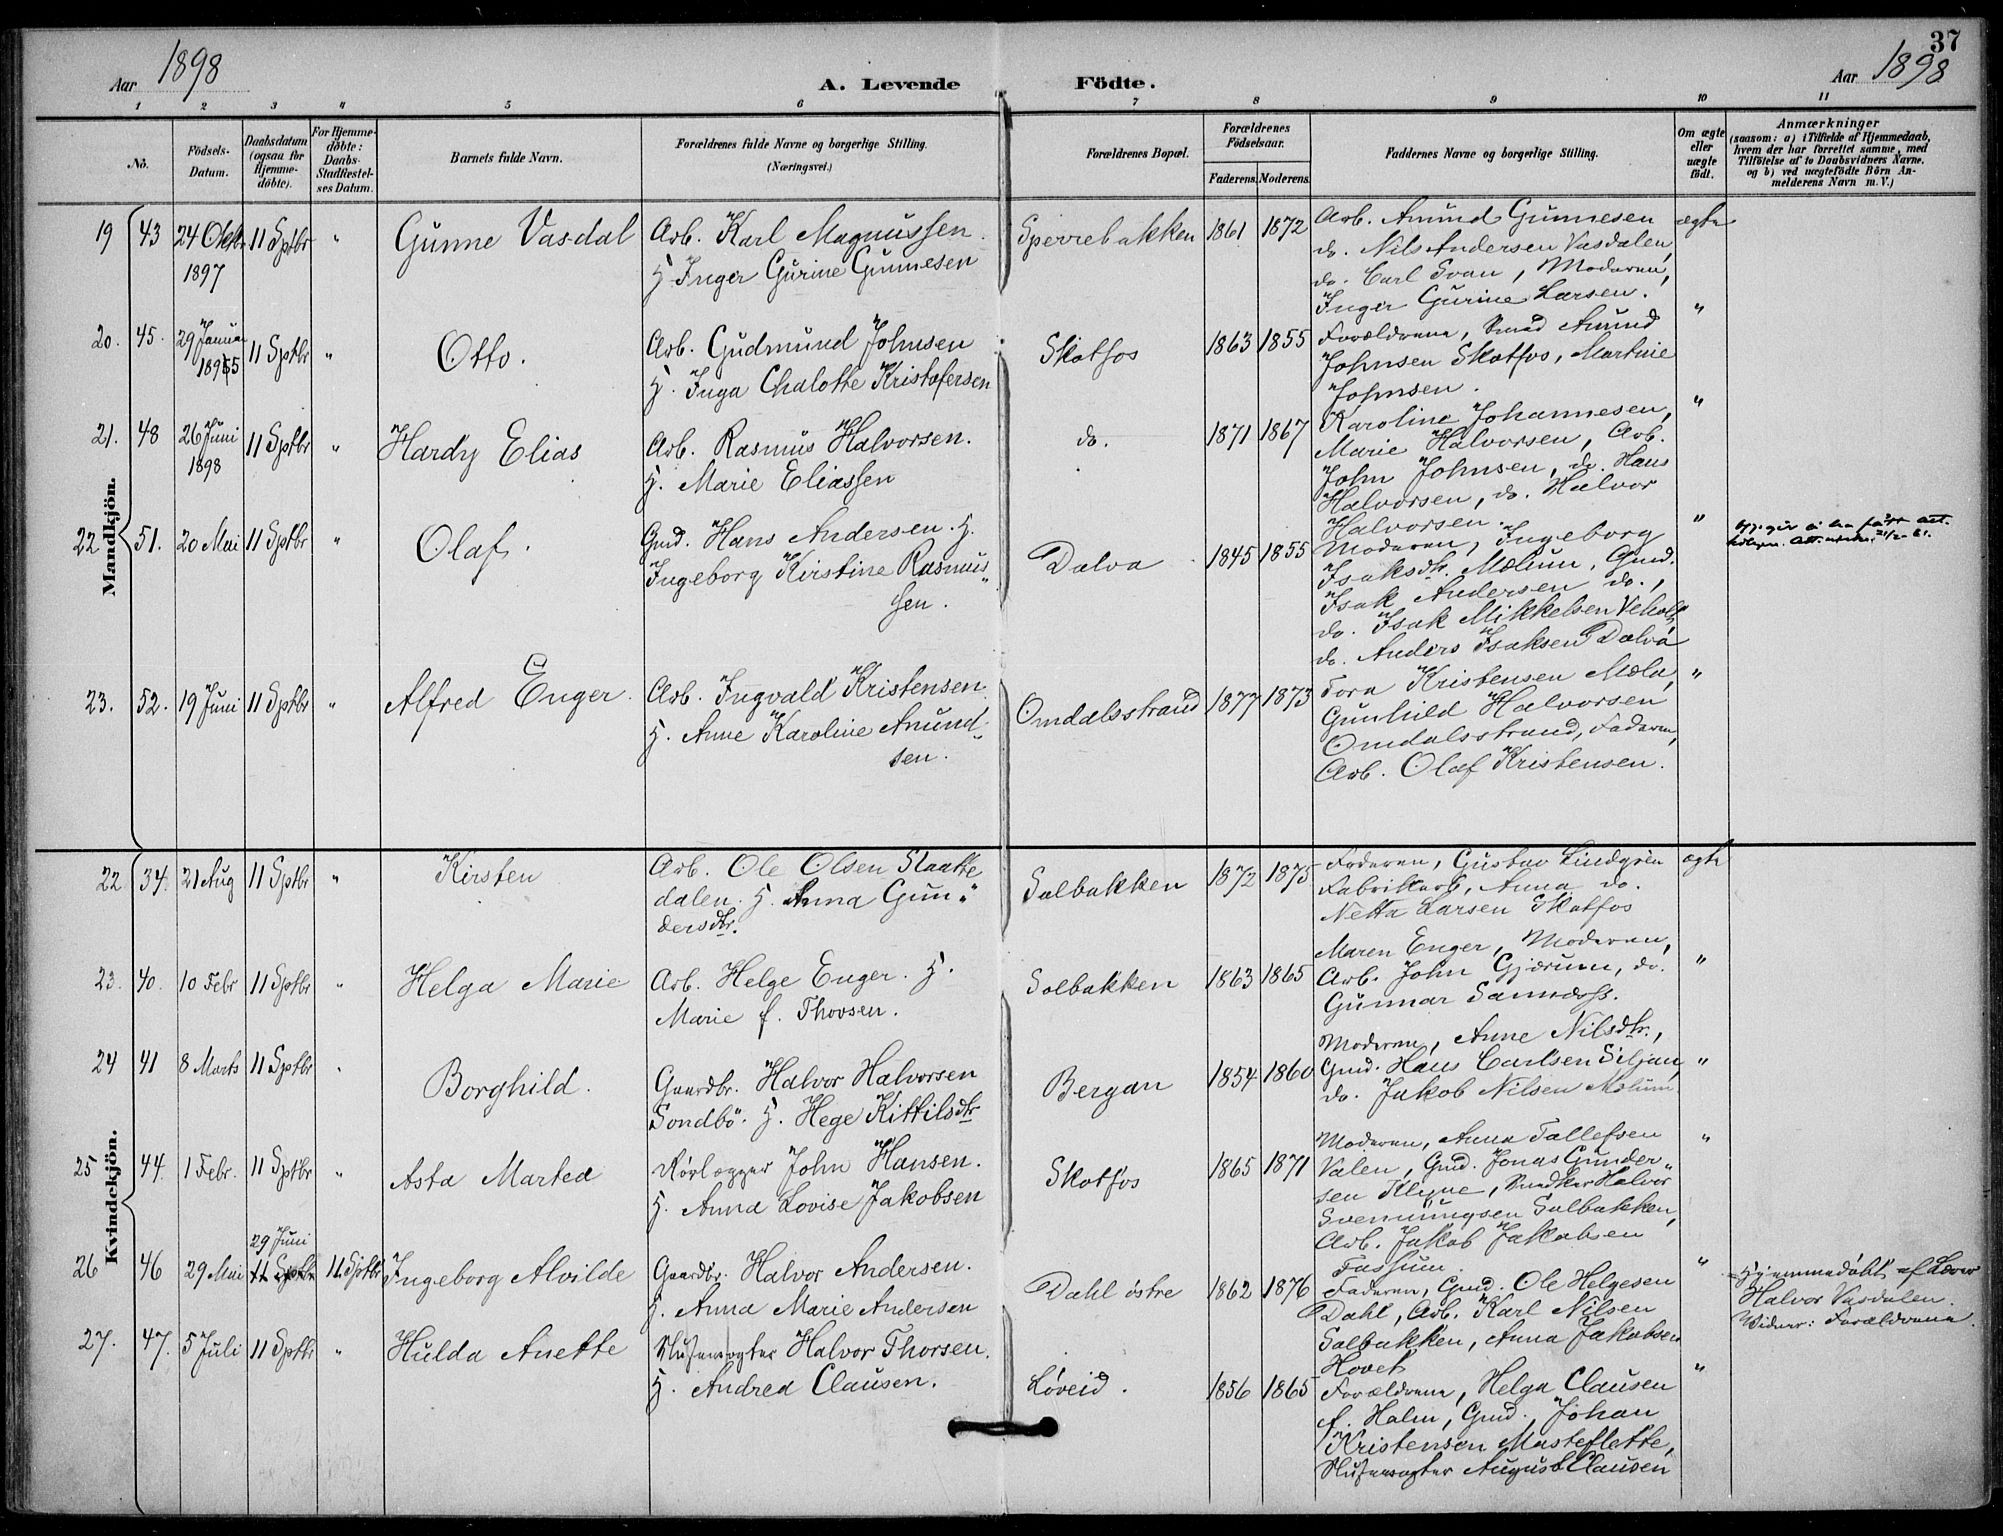 37
Aar 1898
A. Levende Födte.
Aar 1898
1 2 3 4 5 6 7 8 9 10 11
No.
Födsels-
Datum.
Daabsdatum
(ogsaa for
Hjemme-
döbte).
For Hjemme-
döbte:
Daabs-
Stadfestel-
ses Datum.
Barnets fulde Navn.
Forældrenes fulde Navne og borgerlige Stilling.
(Næringsvei.)
Forældrenes Bopæl.
Forældrenes
Födselsaar.
Faderens. Moderens.
Faddernes Navne og borgerlige Stilling.
Om ægte
eller
uægte
födt.
Anmærkninger
(saasom: a) i Tilfælde af Hjemmedaab,
hvem der har forrettet samme, med
Tilföielse af to Daabsvidners Navne,
og b) ved uægtefödte Börn An-
melderens Navn m. V.)
Mandkjön.
19 43 24 Oktr 11 Sptbr " Gunne Vasdal Arb. Karl Magnussen Sperrebakken 1861 1872 Arb. Amund Gunnesen ægte
1897 H. Inger Gurine Gunnesen do. Nils Andersen Vasdalen,
do. Carl Svan, Moderen,
Inger Gurine Larsen.
20. 45. 29 Januar 11 Sptbr " Otto. Arb. Gudmund Johnsen Skotfos 1863 1855 Forældrene, Smed Amund "
1895 H. Inga Chalotte Kristofersen Johnsen Skotfos, Martine
Johnsen.
21. 48 26 Juni 11 Sptbr " Hardy Elias Arb. Rasmus Halvorsen. do. 1871 1867 Karoline Johannesen, "
1898 H. Marie Eliassen Marie Halvorsen, Arb.
John Johnsen, do. Hans
Halvorsen, do. Halvor
Halvorsen.
22 51. 20 Mai 11 Sptbr " Olaf. Gmd. Hans Andersen. H. Dalva 1845 1855 Moderen, Ingeborg "
Ingeborg Kirstine Rasmus„ Isaksdtr. Mælum, Gmd.
sen. Isak Andersen do.,
do. Isak Mikkelsen Veholt,
do. Anders Isaksen Dalva
23. 52. 19 Juni 11 Sptbr " Alfred Enger. Arb. Ingvald Kristensen Omdalsstrand 1877 1873 Tora Kristensen Mæla, "
H. Anne Karoline Amund- Gunhild Halvorsen
sen. Omdalsstrand, Faderen,
Arb. Olaf Kristensen.
Kvindekjön.
22 34. 21 Aug 11 Sptbr " Kirsten Arb. Ole Olsen Slaatte Solbakken 1872 1875 Faderen, Gustav Lindgren ægte
dalen. H. Anna Gun„ Fabrikarb, Anna do.
dersdtr. Netta Larsen Skotfos
23. 40. 10 Febr 11 Sptbr " Helga Marie Arb. Helge Enger. H. Solbakken 1863 1865 Maren Enger, Moderen, "
Marie f. Thovsen. Arb. John Gjærum, do.
Gunnar
24 41 8 Marts 11 Sptbr " Borghild. Gaardbr. Halvor Halvorsen Bergan 1854 1860 Moderen, Anne Nilsdtr., "
Sondbö. H. Hege Kittilsdtr Gmd. Hans Carlsen Siljan
do. Jakob Nilsen Mælum
25 44. 1 Febr. 11 Sptbr " Asta Martea Rørlægger John Hansen. Skotfos 1865 1871 Moderen, Anna Tallefsen "
H. Anna Lovise Jakobsen Valen, Gmd. Jonas Gunder„
sen Klyve, Snedker Halvor
Svenningsen Solbakken,
Arb. Jakob Jakobsen
Fossum.
26 46 29 Mai 29 Juni 11 Sptbr 11. Sptbr Ingeborg Alvilde Gaardbr. Halvor Andersen. Dahl østre 1862 1876 Faderen, Gmd. Ole Helgesen " Hjemmedøbt af Lærer
H. Anna Marie Andersen Dahl, Arb. Karl Nilsen Halvor Vasdalen.
Solbakken, Anna Jakobsen Vidner: Forældrene.
Hovet
27. 47. 5 Juli 11 Sptbr " Hulda Anette Slusevogter Halvor Thorsen. Løveid. 1856 1865 Forældrene, Helga Clausen "
H. Andrea Clausen. f. Holm, Gmd. Johan
Kristensen Mosteflette,
Slusevogter August Clausen